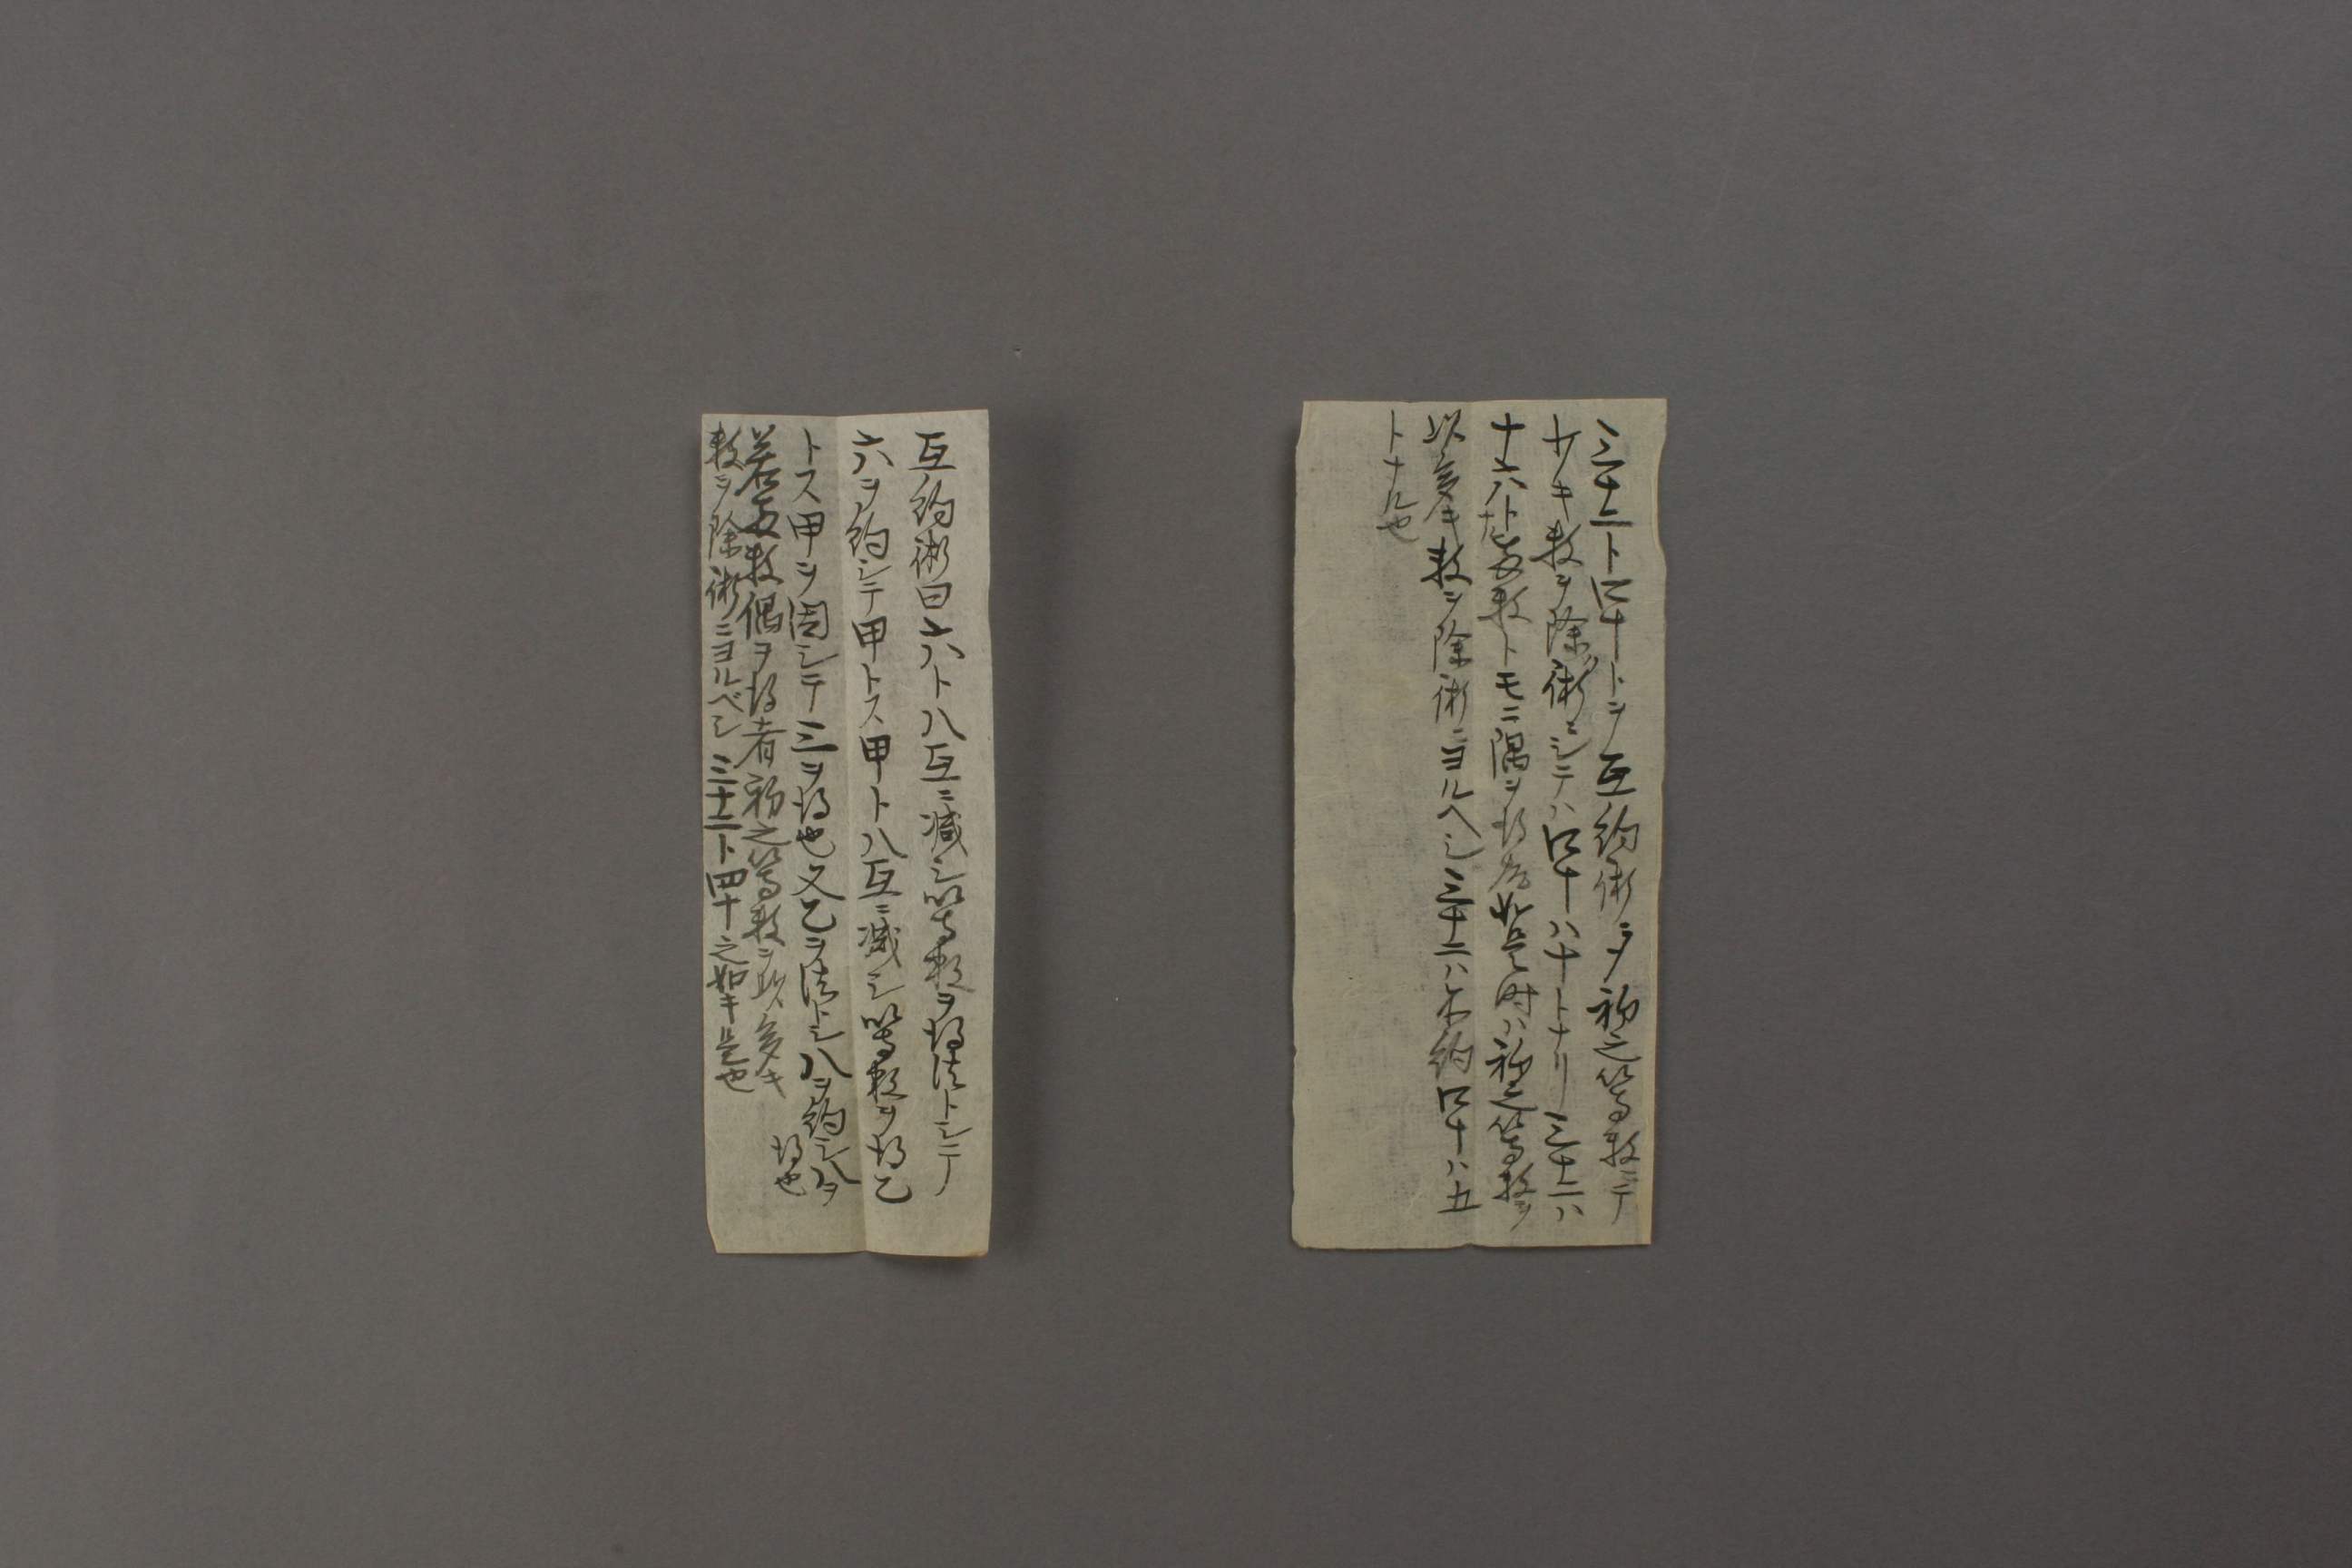 三十二ト四十トヲ互約術ヲメ初之等数ニテ
少キ数ヲ除術ニシテハ四十ハ十トナリ三十二ハ
十六ト
ナル故両数トモニ隅ヲ得ル如是時ハ初之等数ヲ
以多キ数ヲ除術ニヨルヘシ三十二ハ不約四十ハ五
トナル也
互約術曰六ト八互ニ減シ等数ヲ得法トシテ
六ヲ約シテ甲トス甲ト八互ニ減シ等数ヲ得乙
トス甲ヲ因シテ三ヲ得也又乙ヲ法トシ八ヲ約シ八ヲ
得也
若両数偶ヲ得者初之等数ヲ以多キ
数ヲ除術ニヨルベシ三十二ト四十之如キ是也